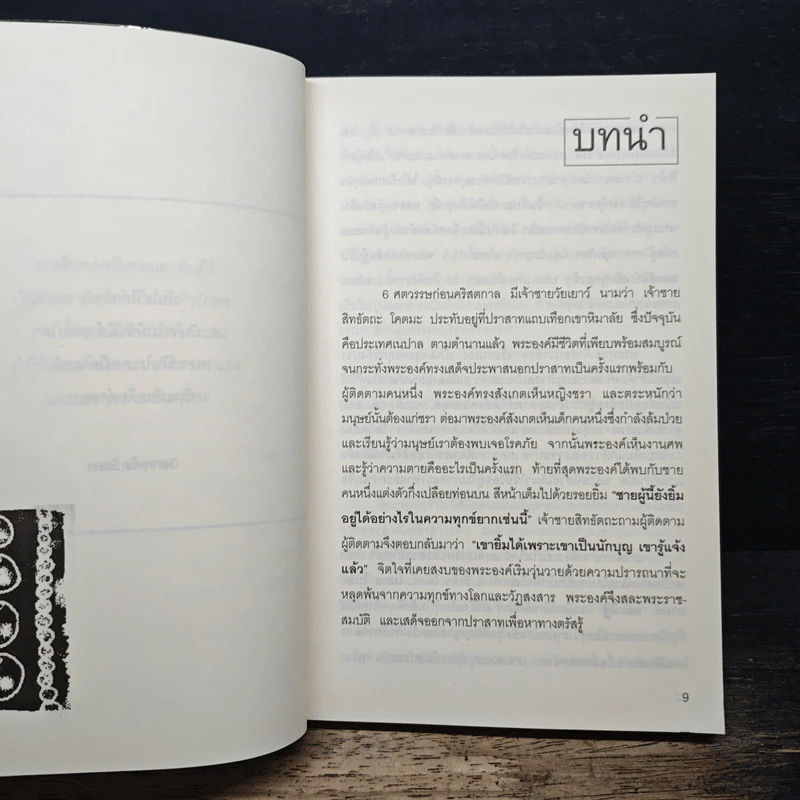 บทนำ
6 ศตวรรษก่อนคริสตกาล มีเจ้าชายวัยเยาว์ นามว่า เจ้าชาย
สิทธัตถะ โคตมะ ประทับอยู่ที่ปราสาทแถบเทือกเขาหิมาลัย ซึ่งปัจจุบัน
คือประเทศเนปาล ตามตำนานแล้ว พระองค์มีชีวิตที่เพียบพร้อมสมบูรณ์
จนกระทั่งพระองค์ทรงเสด็จประพาสนอกปราสาทเป็นครั้งแรกพร้อมกับ
ผู้ติดตามคนหนึ่ง พระองค์ทรงสังเกตเห็นหญิงชรา และตระหนักว่า
มนุษย์นั้นต้องแก่ชรา ต่อมาพระองค์สังเกตเห็นเด็กคนหนึ่งซึ่งกำลังล้มป่วย
และเรียนรู้ว่ามนุษย์เราต้องพบเจอโรคภัย จากนั้นพระองค์เห็นงานศพ
และรู้ว่าความตายคืออะไรเป็นครั้งแรก ท้ายที่สุดพระองค์ได้พบกับชาย
คนหนึ่งแต่งตัวกึ่งเปลือยท่อนบน สีหน้าเต็มไปด้วยรอยยิ้ม "ชายผู้นี้ยังยิ้ม
อยู่ได้อย่างไรในความทุกข์ยากเช่นนี้" เจ้าชายสิทธัตถะถามผู้ติดตาม
ผู้ติดตามจึงตอบกลับมาว่า "เขายิ้มได้เพราะเขาเป็นนักบุญ เขารู้แจ้ง
แล้ว" จิตใจที่เคยสงบของพระองค์เริ่มวุ่นวายด้วยความปรารถนาที่จะ
หลุดพ้นจากความทุกข์ทางโลกและวัฏสงสาร พระองค์จึงสละพระราช-
สมบัติ และเสด็จออกจากปราสาทเพื่อหาทางตรัสรู้
9